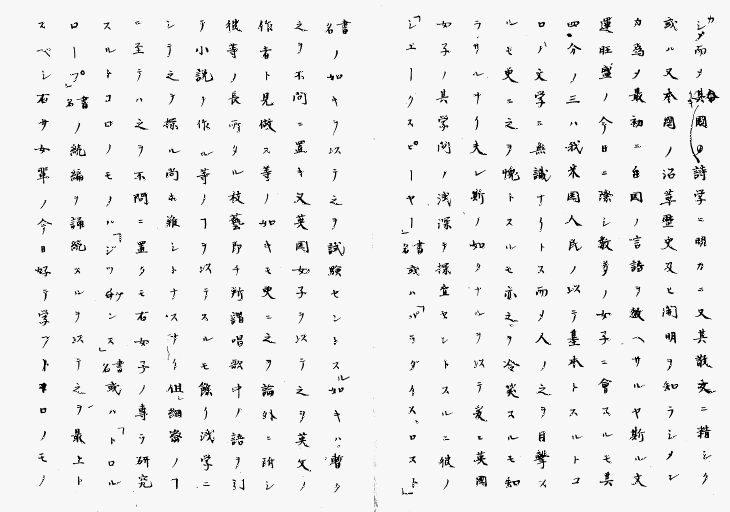 シ而メ其國ノ詩学ニ明カニ又其散文ニ精シク
或ハ又本國ノ沿革歴史及ヒ開明ヲ知ラシメン
カ為メ最初ニ自國ノ言語ヲ教ヘサルヤ斯ル文
運旺盛ノ今日ニ際シ数多ノ女子ニ會スルモ其
四分ノ三ハ我米國人民ノ以テ基本トスルトコ
ロノ文学ニ無識ナリトス而メ人ノ之ヲ目撃ス
ルモ更ニ之ヲ愧トスルモ亦之ヲ冷笑スルモ知
ラサルナリ夫レ斯ノ如クナルヲ以テ爰ニ英國
女子ノ其学問ノ浅深ヲ探查セントスルニ彼ノ
「シエークスピヤー」書名或ハ「パラダイス、ロスト」
書名ノ如キヲ以テ之ヲ試験セントスル如キハ暫ク
之ヲ不問ニ置キ又英國女子ヲ以テ之ヲ英文ノ
作者ト見做ス等ノ如キモ更ニ之ヲ論外ニ附シ
彼等ノ長所タル枝藝即チ所謂唱歌中ノ語ヲ引
テ小説ヲ作ル等ノヿヲ以テスルモ餘リ浅学ニ
シテ之ヲ探ル尚ホ難シトナスナリ但細察ノヿ
ニ至テハ之ヲ不問ニ置クモ右女子ノ専ラ研究
スルトコロノモノハ「ジツキンス」書名或ハ「トロル
ロープ」書名ノ続編ヲ誦読スルヲ以テ之ヲ最上ト
スベシ右サ女輩ノ今日好テ学フトコロノモノ